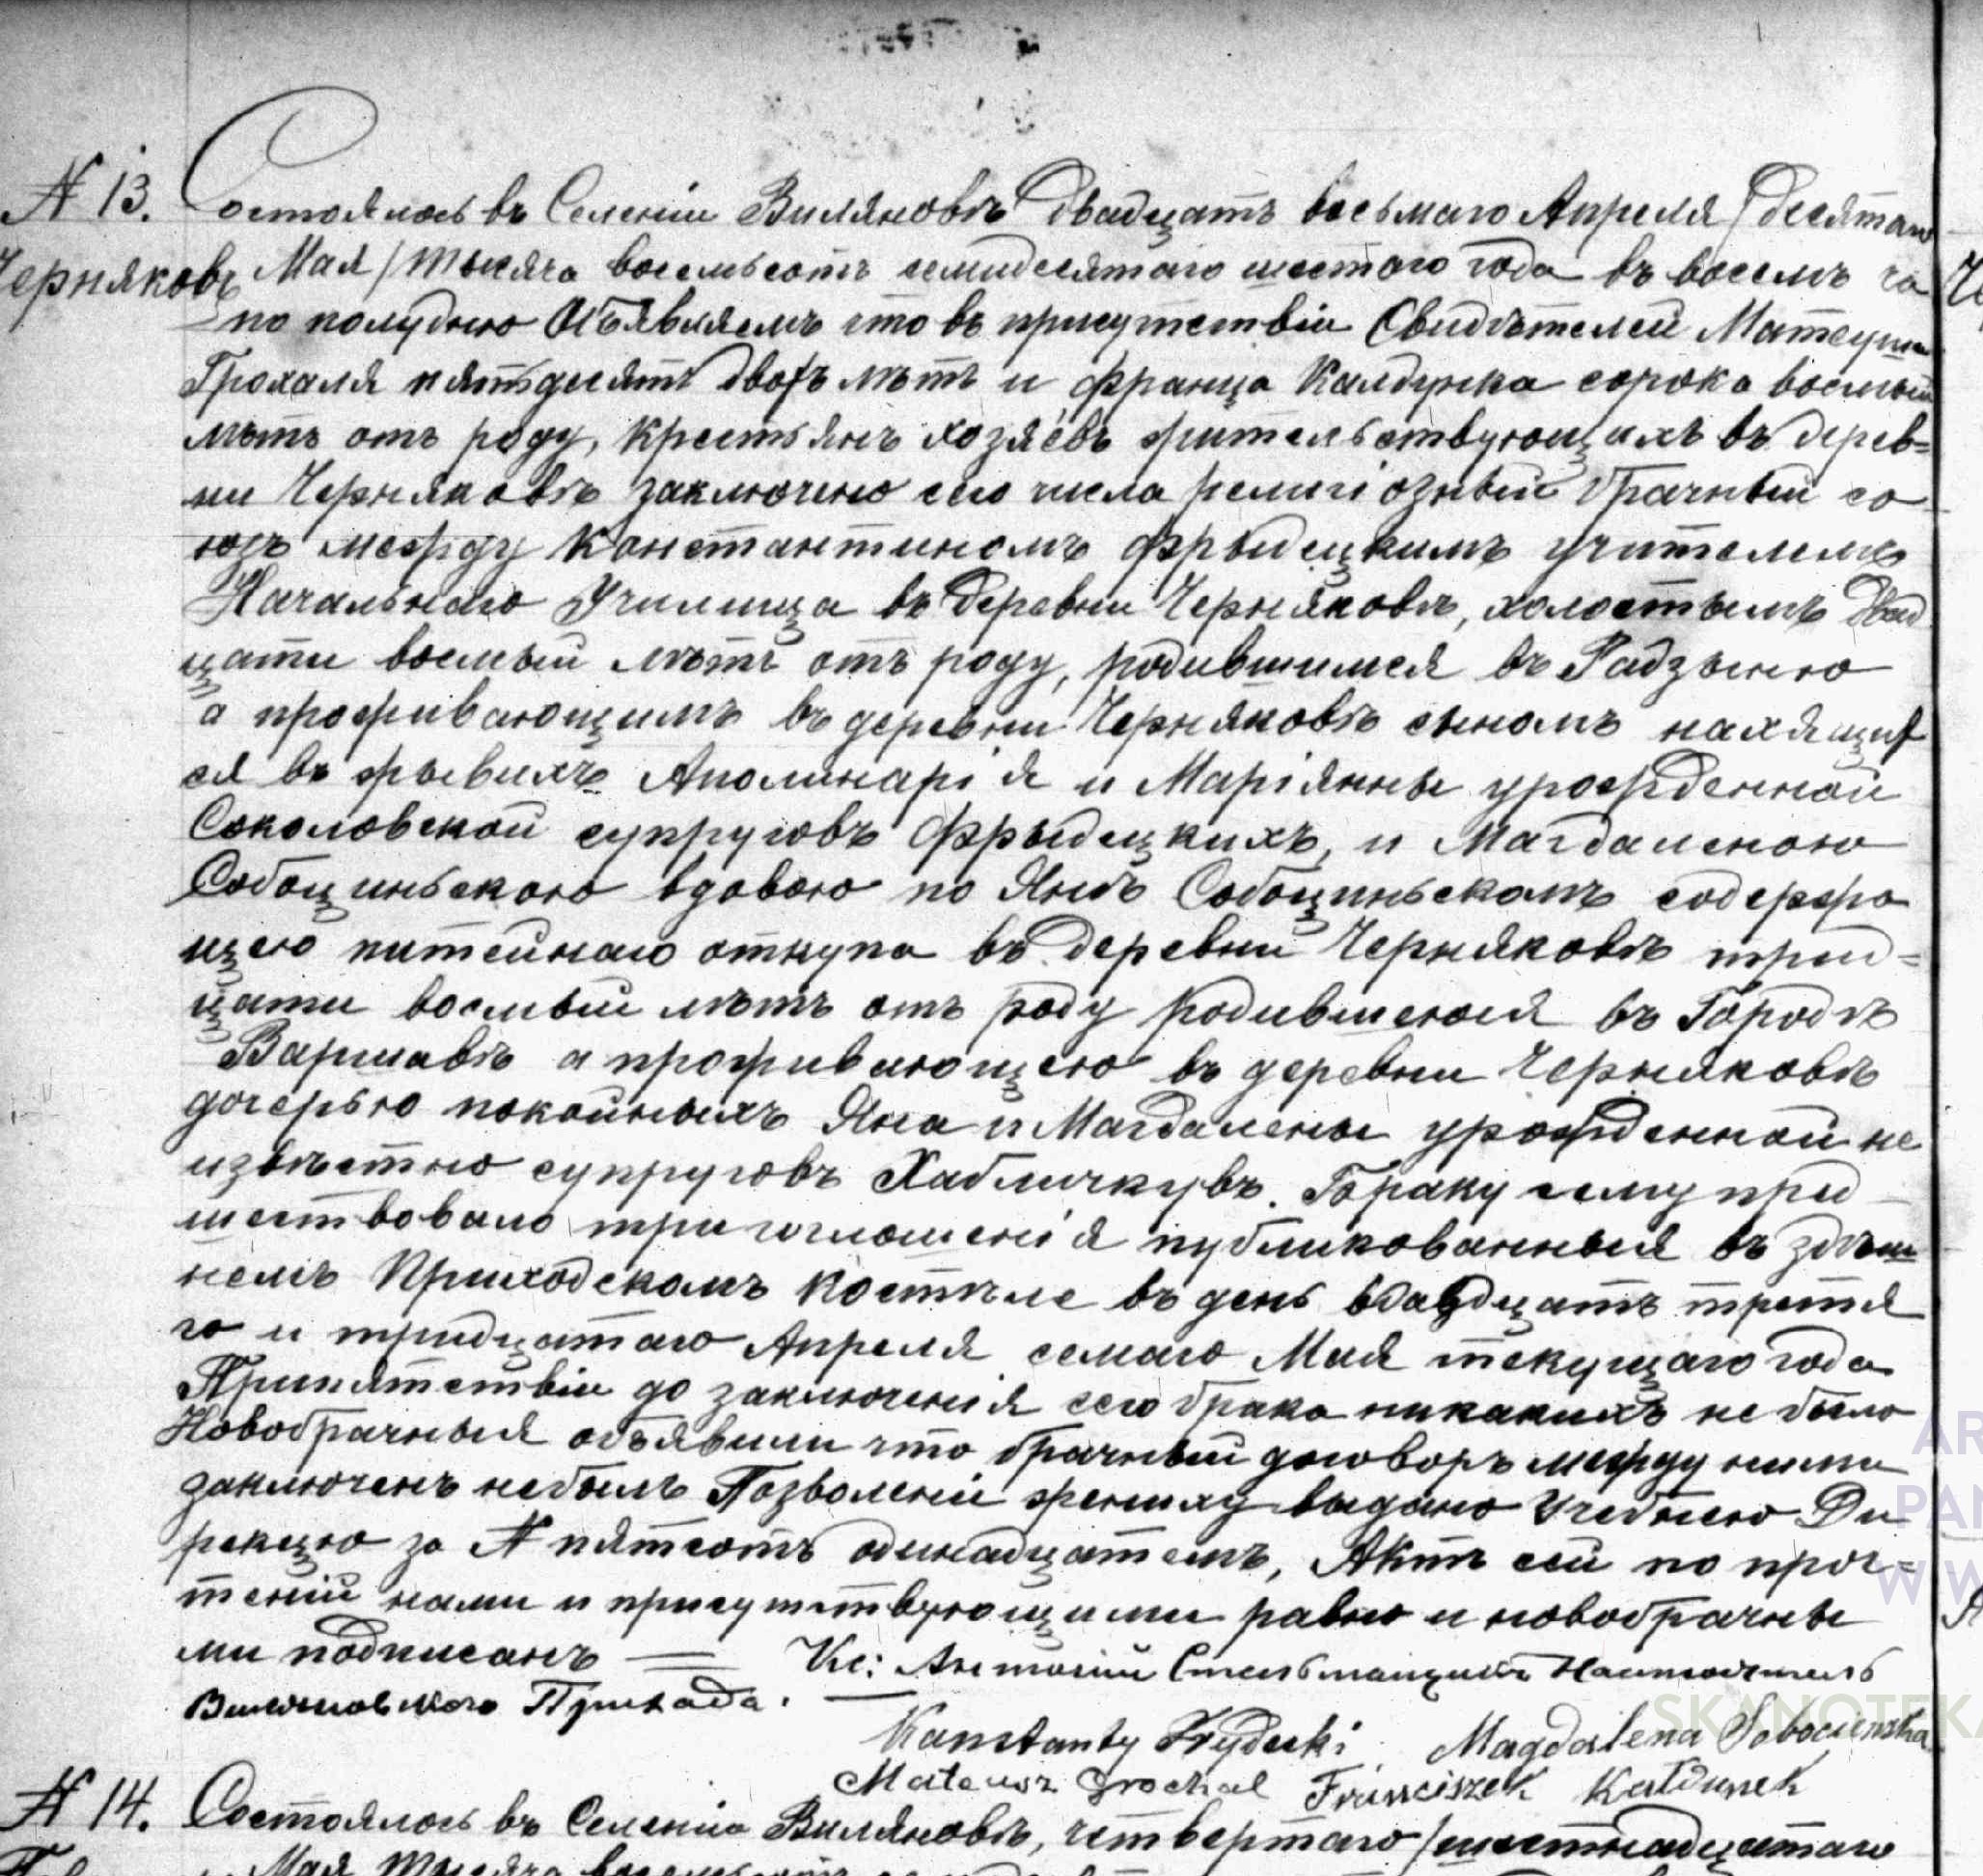 N 13. Состоялось въ Селеніи Виляновѣ двадцать восьмаго Апреля / десятаго
Черняковъ Мая / тысяча восемьсотъ семидесятаго шестого года въ восемъ ча
по полудню Объявляемъ что въ присутствіи Свидѣтелей Матеуша
Грохаля пятьдесятъ двохъ лѣтъ и Франца Калдунка сорока восмый
лѣтъ отъ роду, крестьянъ хозяёвъ жительствующихъ въ дерев=
ни Черняковѣ заключено сего числа религіозный брачный со
юзъ между Константиномъ Фрыдецкимъ учителемъ
Начальнаго Училища въ деревни Черняковѣ, холостымъ двад
цати восмый лѣтъ отъ роду, родившимся въ Радзыню
а проживающимъ въ деревни Черняковѣ сыномъ нахящих
ся въ живихъ Аполинарія и Маріянны урожденной
Соколовской супруговъ Фрыдецкихъ, и Магдаленою
Собоциньскою вдовою по Янѣ Собоциньскомъ содержа
щею питейнаго откупа въ деревни Черняковѣ трид=
цати восмый лѣтъ отъ роду родившеюся въ Городѣ
Варшавѣ а проживающею въ деревни Черняковѣ
дочерью покойныхъ Яна и Магдалены урожденной не
извѣстно супруговъ Хабличкувъ. Браку сему пред
шествовало три оглашенія публикованныя въ здѣш
немъ Приходскомъ Костѣле въ день двадцать третя
го и тридцатаго Апреля семаго Мая текущаго года
Припятствіи до заключенія сего брака никакихъ не было
Новобрачныя объявили что брачный договоръ между ними
заключенъ небылъ Позволеніи жениху выдано Учебною Ди
рекцію за N пятсотъ одинадцатемъ, Актъ сей по проч=
теніи нами и присутствующими равно и новобрачны
ми подписанъ — Кс: Антоній Настоятель
Виляновского Прихода. —
Konstanty Frydecki Magdalena Sobocinska
Mateusz Grochal Franciszek Kałdunek
N 14. Состоялось въ Селеніи Виляновѣ, четвертаго / шестнадцатаго
Мая тысяча восемьсотъ